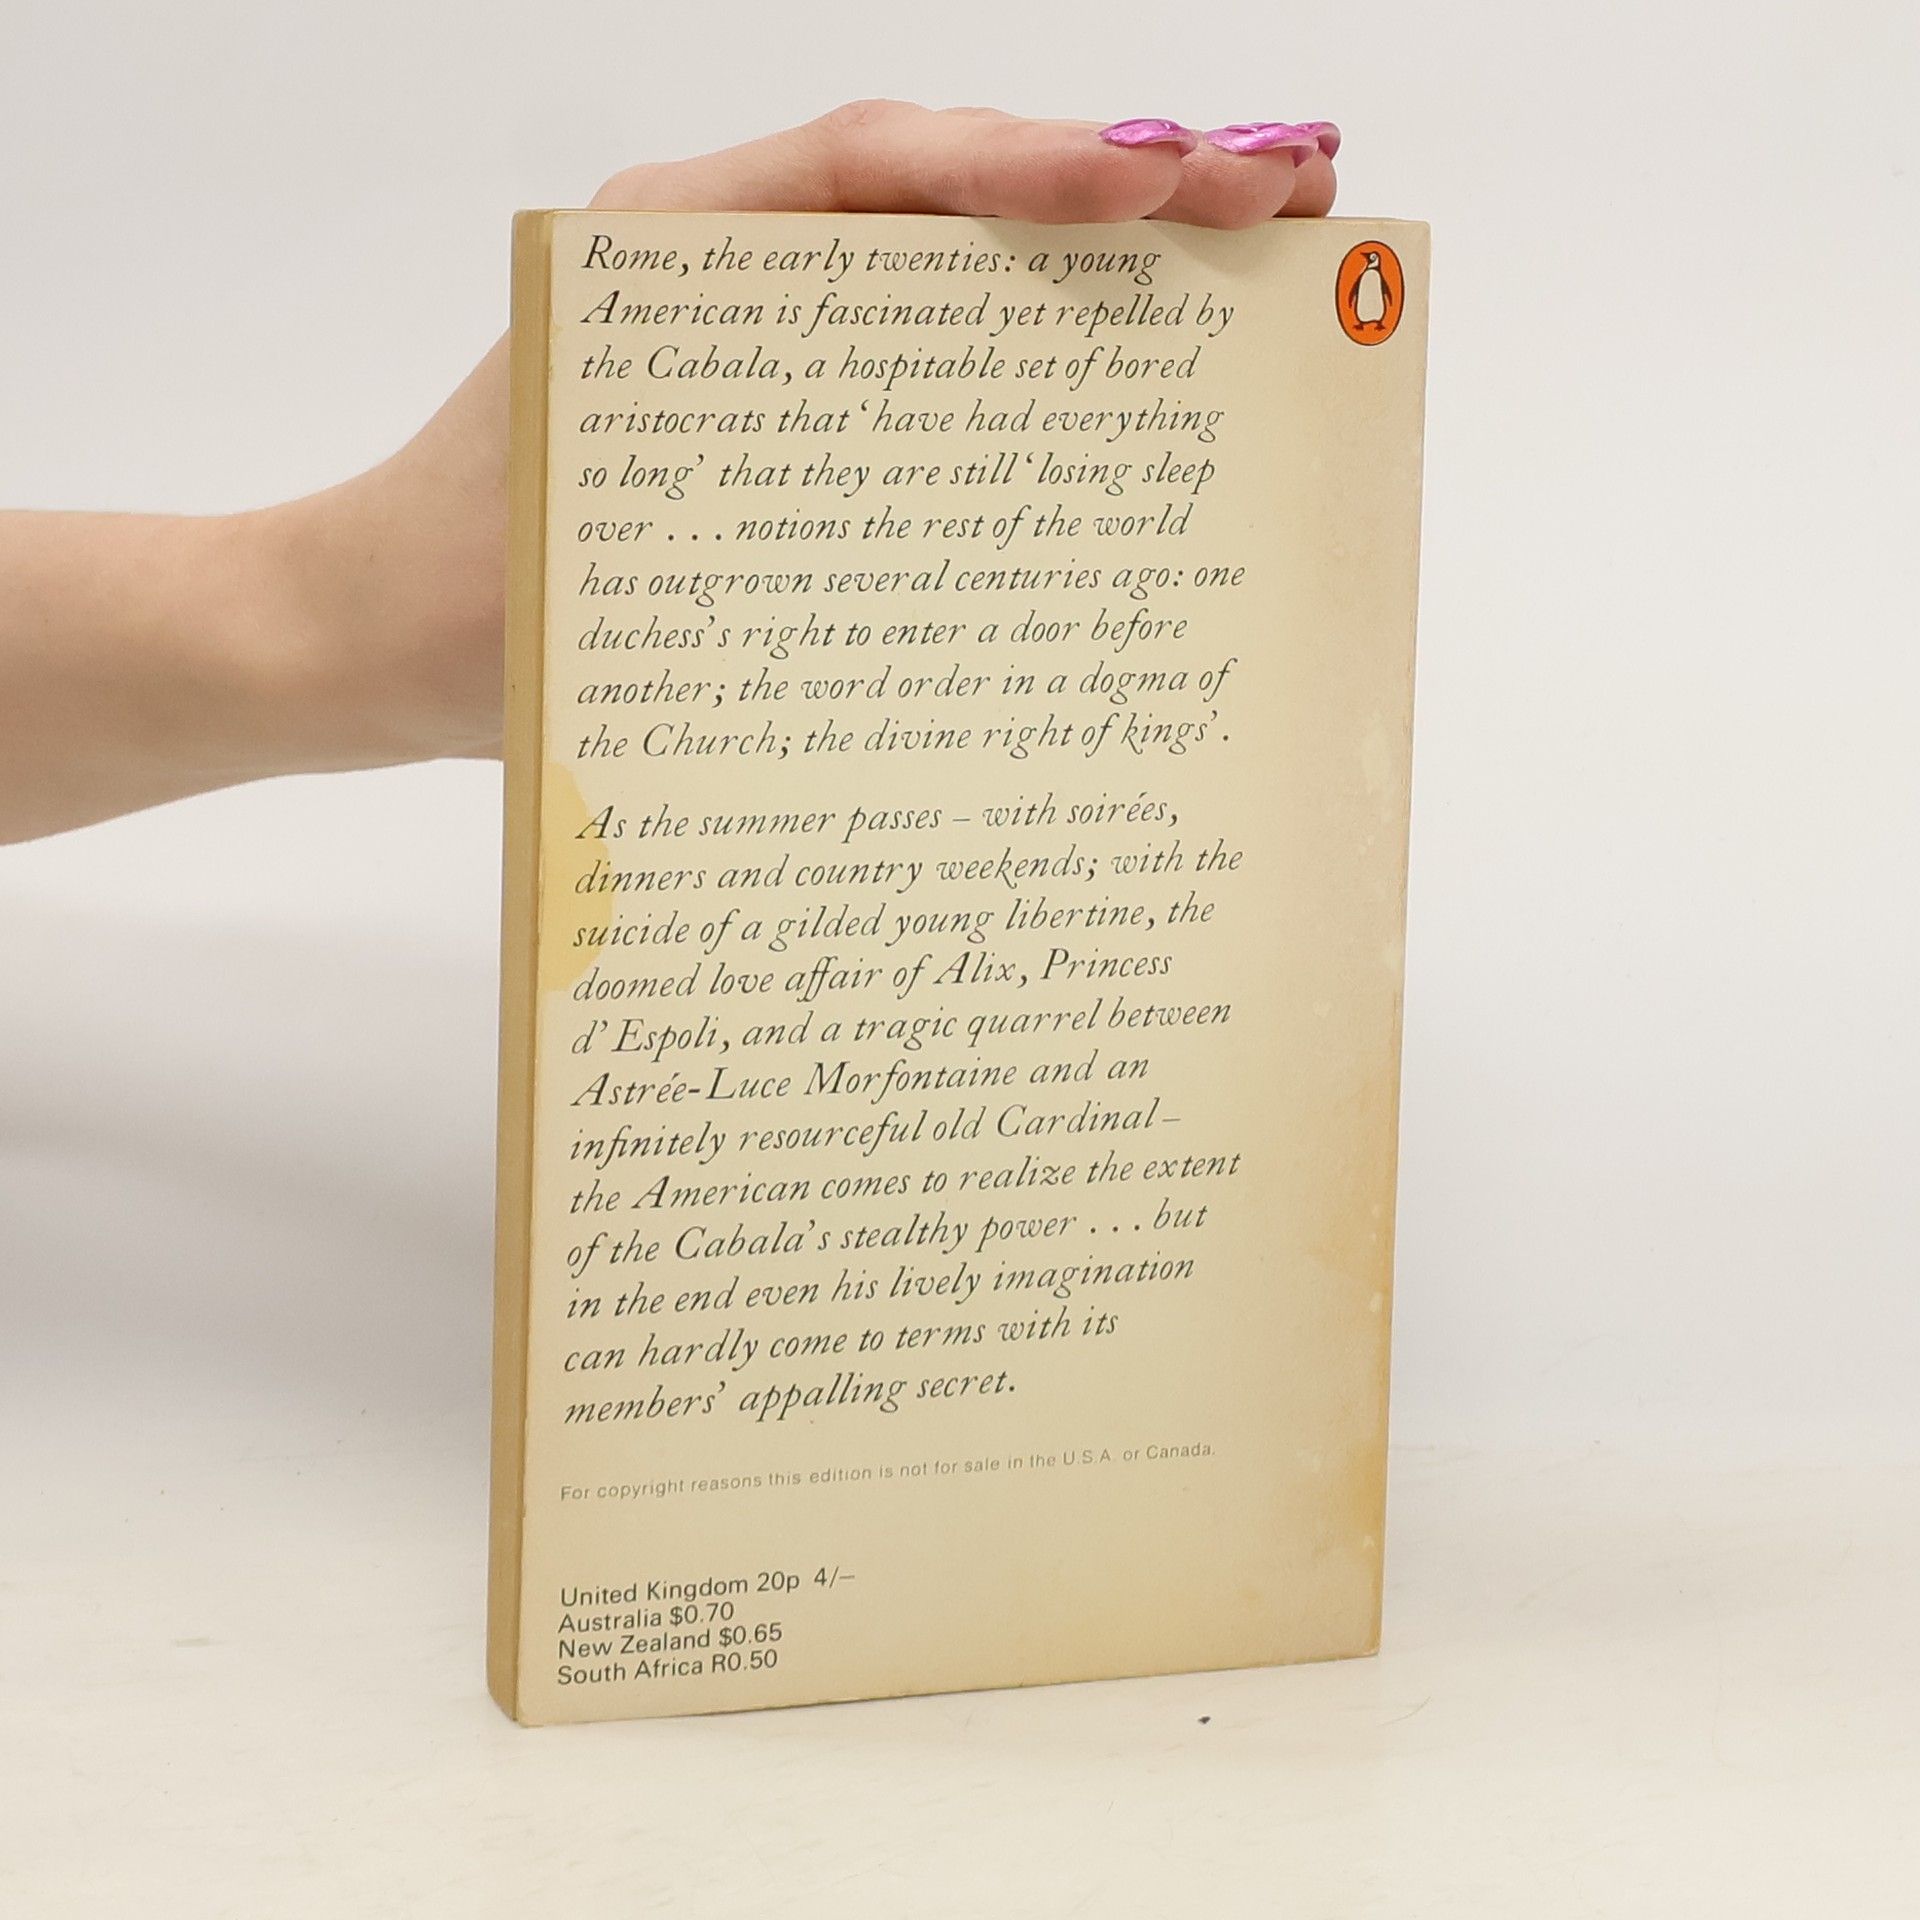 Rome, the early twenties: a young
American is fascinated yet repelled by
the Cabala, a hospitable set of bored
aristocrats that ‘have had everything
so long’ that they are still ‘losing sleep
over . . . notions the rest of the world
has outgrown several centuries ago: one
duchess’s right to enter a door before
another; the word order in a dogma of
the Church; the divine right of kings’.
As the summer passes – with soirées,
dinners and country weekends; with the
suicide of a gilded young libertine, the
doomed love affair of Alix, Princess
d’Espoli, and a tragic quarrel between
Astrée-Luce Morfontaine and an
infinitely resourceful old Cardinal –
the American comes to realize the extent
of the Cabala’s stealthy power . . . but
in the end even his lively imagination
can hardly come to terms with its
members’ appalling secret.
For copyright reasons this edition is not for sale in the U.S.A. or Canada.
United Kingdom 20p 4/–
Australia $0.70
New Zealand $0.65
South Africa R0.50